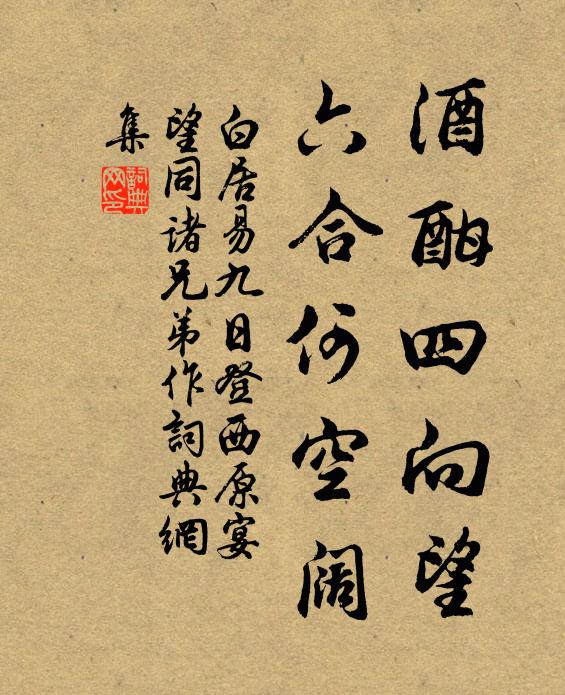 酒酣四向望
六合何空阔
白居易九日登西原宴
望同诸兄弟作詞典網
集
詞典網印